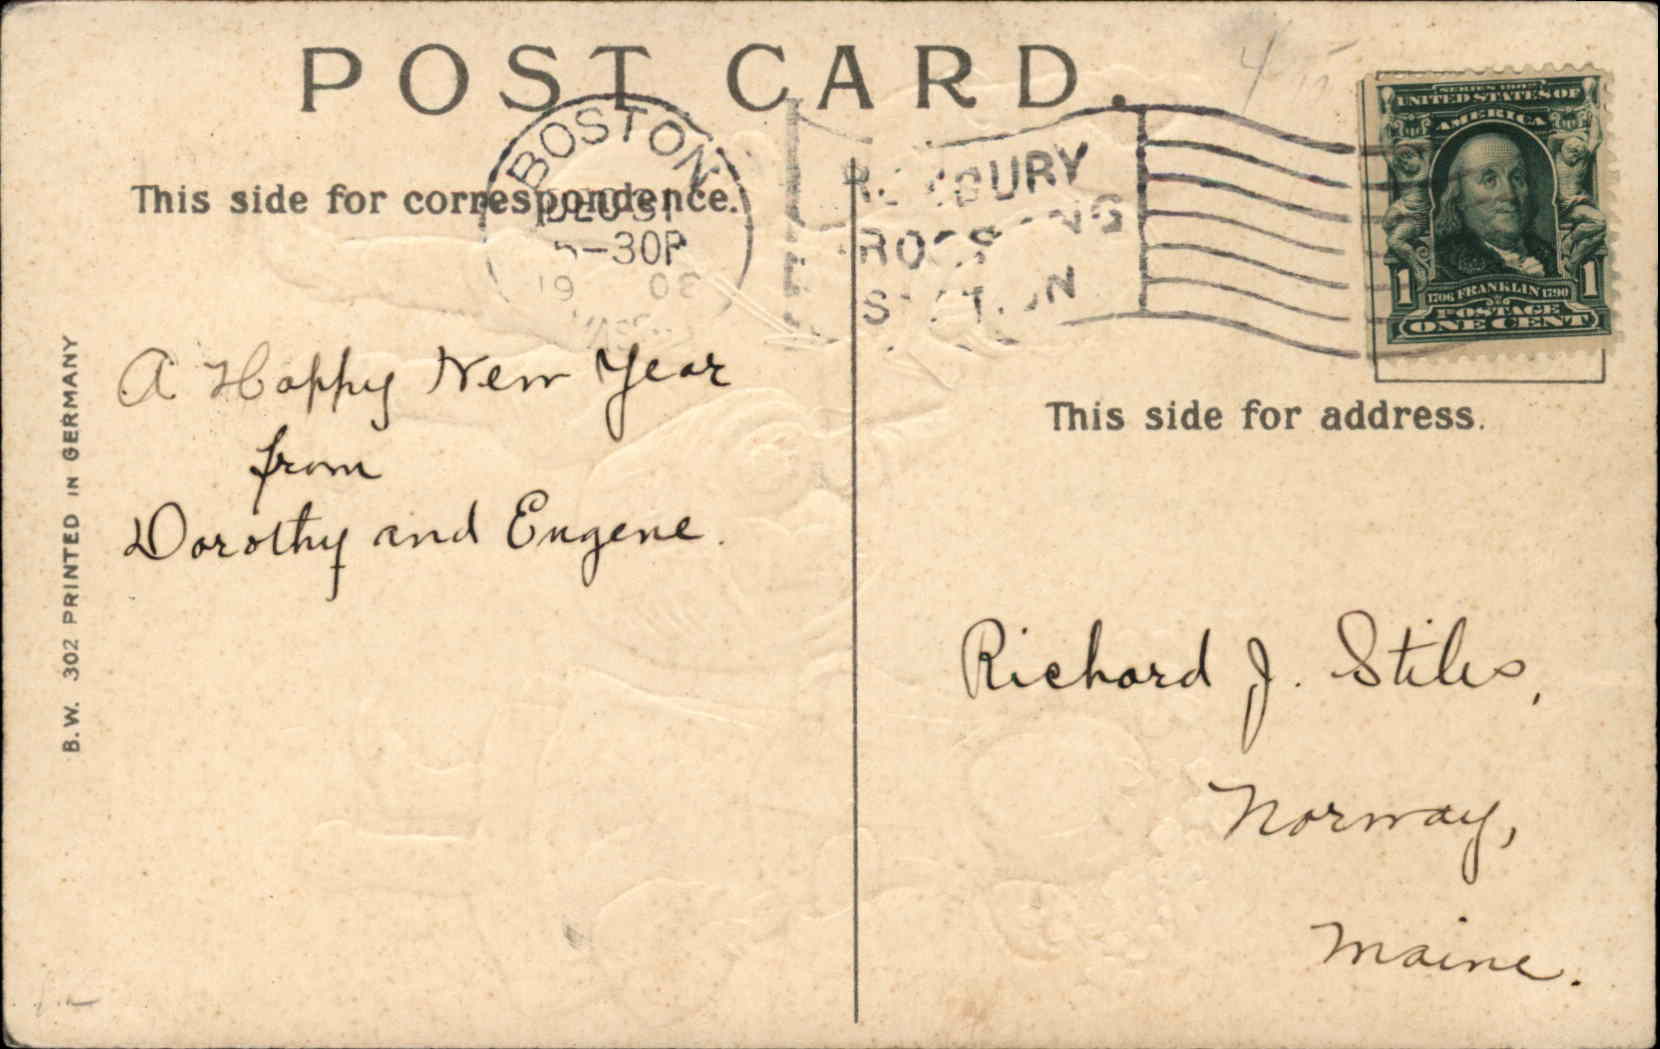 POST CARD.
This side for correspondence.
BOSTON
DEC 31
-30P
19 08
ROXBURY
CROSSING
STATION
SERIES 1902
UNITED STATES OF
AMERICA
1706 FRANKLIN 1790
1 1
POSTAGE
ONE CENT
This side for address.
A Happy New Year
from
Dorothy and Eugene.
Richard J. Stiles,
Norway,
Maine.
B.W. 302 PRINTED IN GERMANY